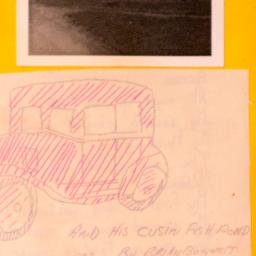 AND HIS CUSIN FISH POND
BY BRIAN BONNETT